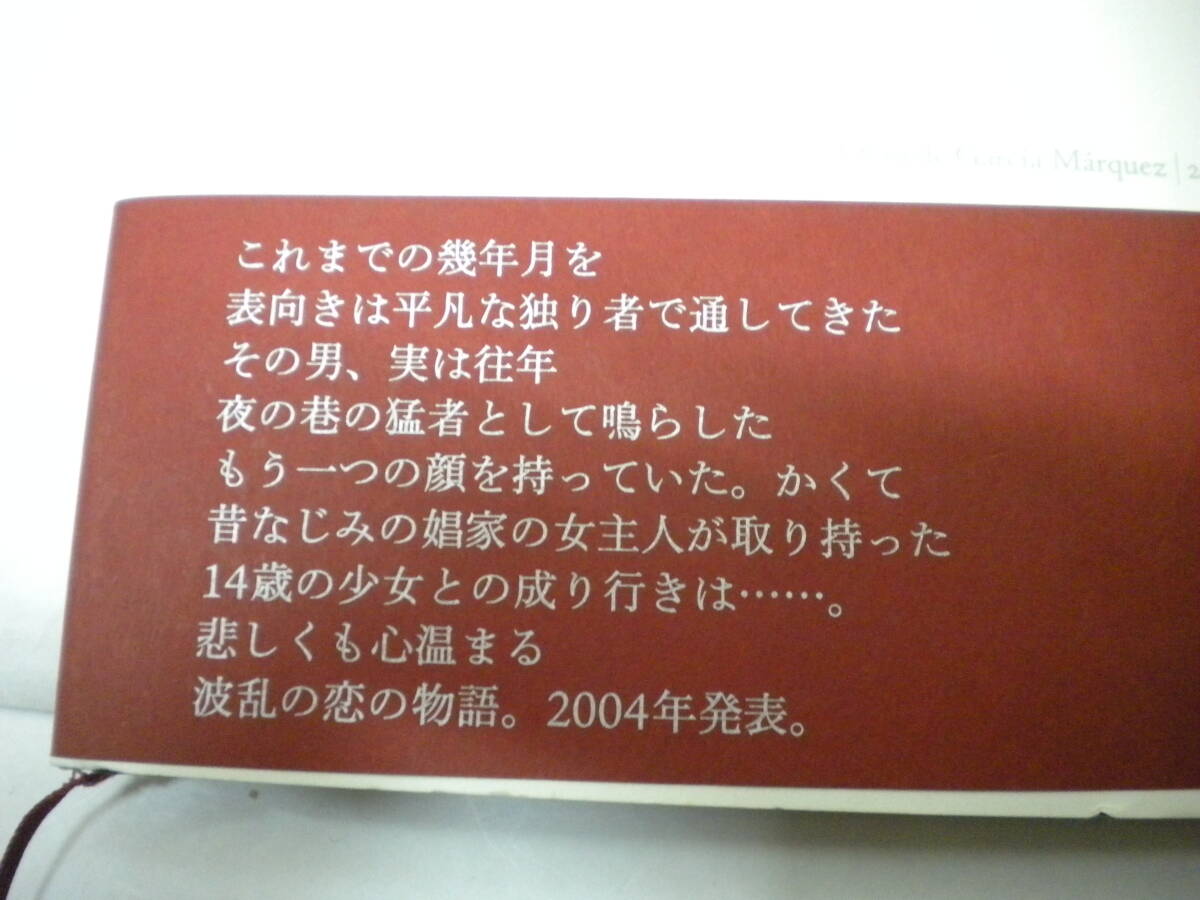 García Márquez | 2
これまでの幾年月を
表向きは平凡な独り者で通してきた
その男、実は往年
夜の巷の猛者として鳴らした
もう一つの顔を持っていた。かくて
昔なじみの娼家の女主人が取り持った
14歳の少女との成り行きは……。
悲しくも心温まる
波乱の恋の物語。2004年発表。